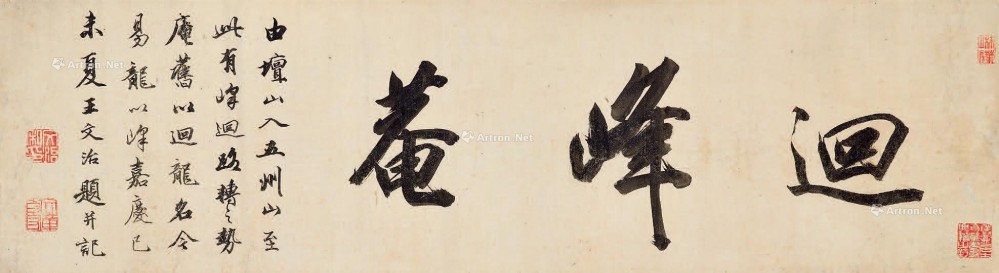 迴峰菴
由壇山入五州山至
此有峰迴路轉之勢
庵舊以迴龍名今
易龍以峰嘉慶己
未夏王文治題并記
Artron.Net
Artron.Net
Artron.Net
Artron.Net